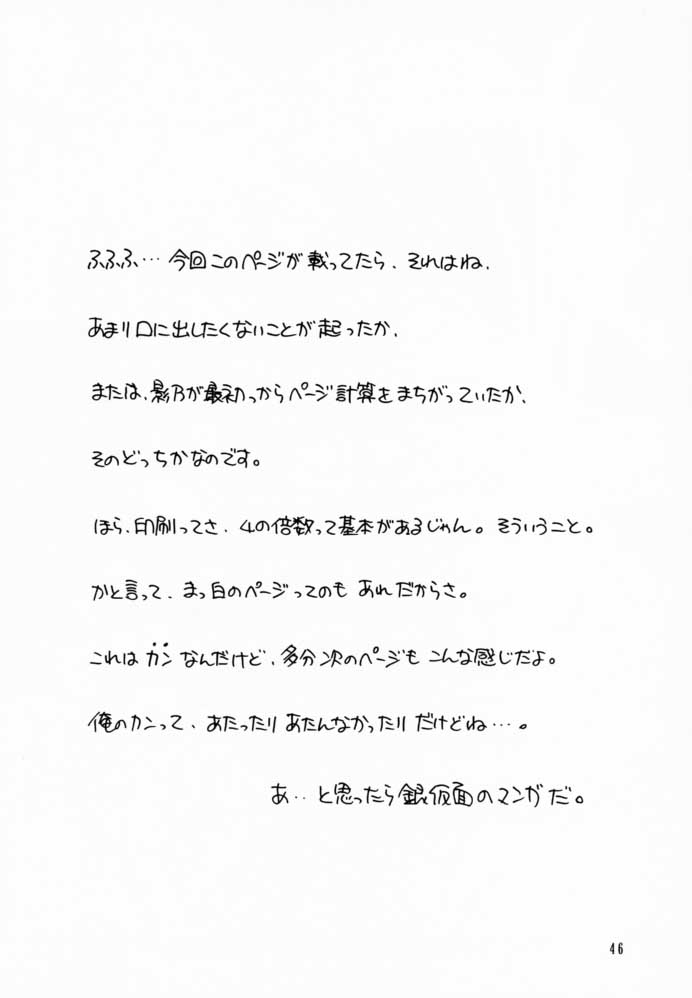 ふふふ… 今回このページが載ってたら、それはね、
あまり口に出したくないことが起ったか、
または、影乃が最初っからページ計算をまちがっていたか、
そのどっちかなのです。
ほら、印刷ってさ、4の倍数って基本があるじゃん。そういうこと。
かと言って、まっ白のページってのも あれだからさ。
これは カン なんだけど、多分次のページも こんな感じだよ。
俺のカンって、あたったり あたんなかったり だけどね…。
あ‥と思ったら銀仮面のマンガだ。
46